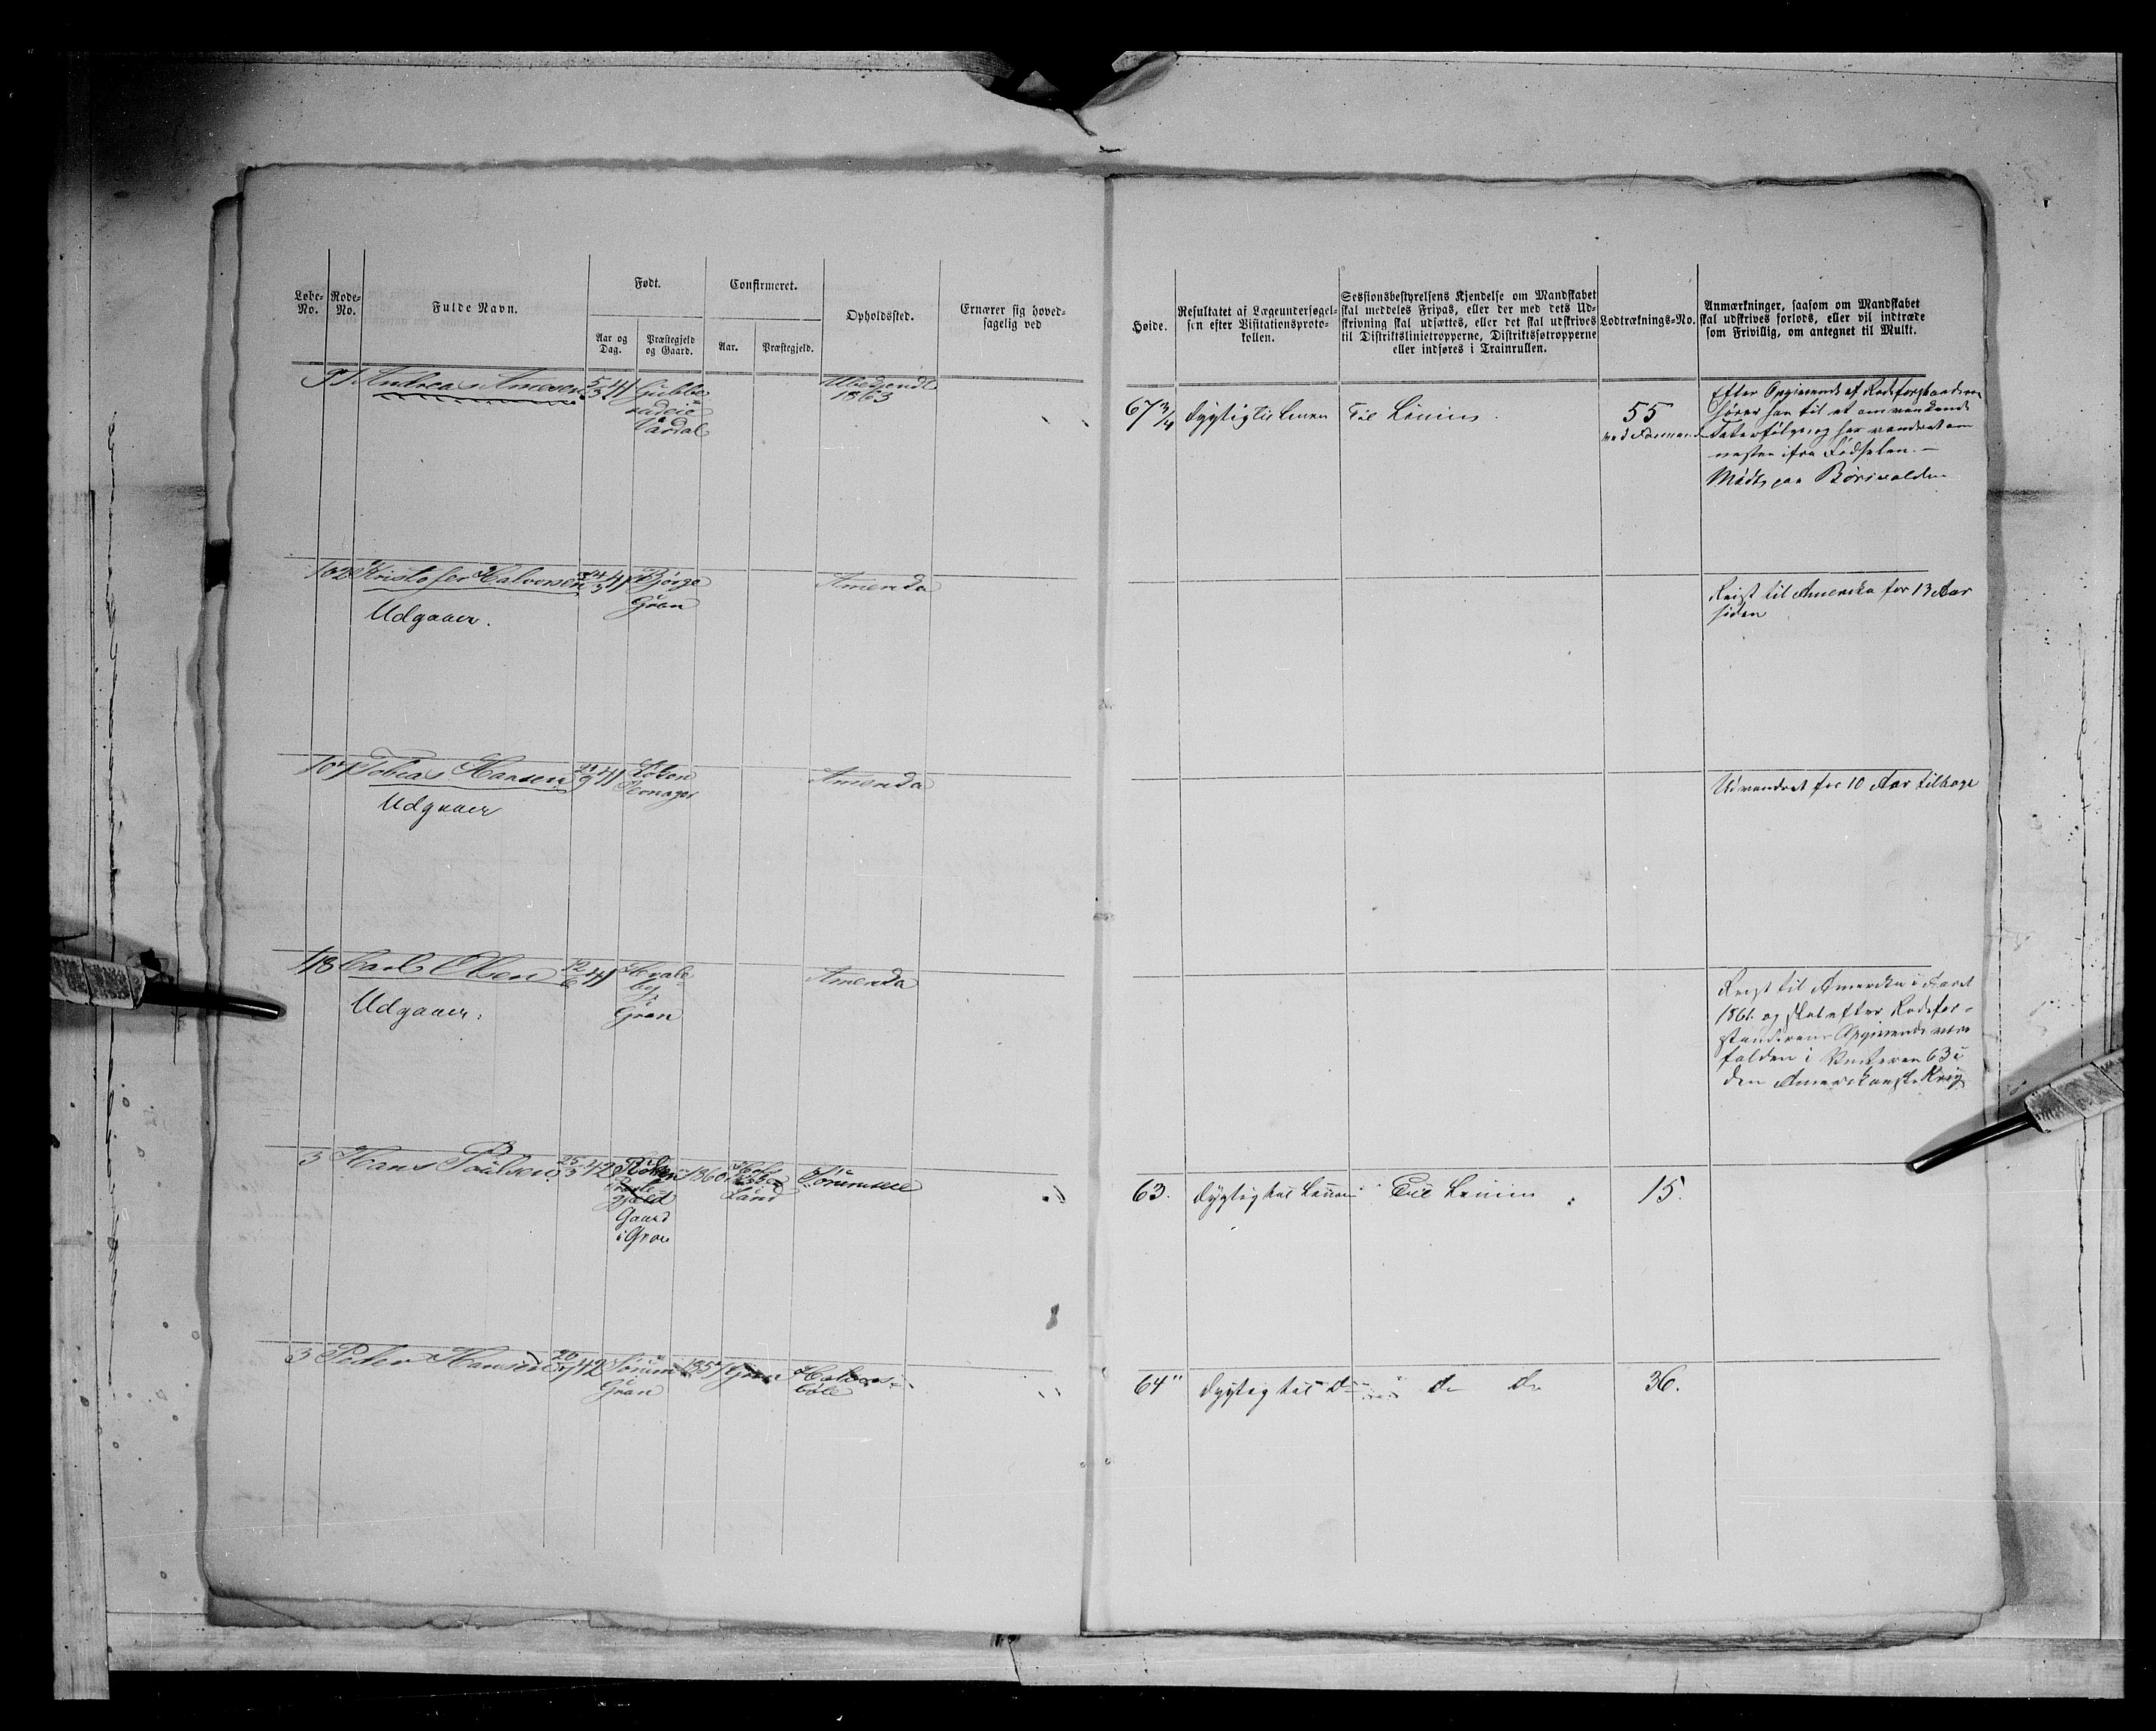 Løbe-No.
Rode-No.
Fulde Navn.
Født.
Aar og Dag.
Præstegjeld og Gaard.
Confirmeret.
Aar.
Præstegjeld.
Opholdssted.
Ernærer sig hoved-
sagelig ved
Høide.
Resultatet af Lægeundersøgel-
sen efter Visitationsproto-
kollen.
Sessionsbestyrelsens Kjendelse om Mandskabet
skal meddeles Fripas, eller der med dets Ud-
skrivning skal udsættes, eller det skal udskrives
til Distriktslinietropperne, Distriktsfotropperne
eller indføres i Trainrullen.
Lodtræknings-No.
Anmærkninger, saasom om Mandskabet
skal udskrives forlods, eller vil indtræde
som Frivillig, om antegnet til Mulkt.
91 Andreas Amesen 5/3 41
Vardal
Ubekjendt
1863
67 3/4
dygtig til Linien
Til Linien
55
Efter Opgivende af Rodeforstanderen
hører han til et omvankende
Taterfølge og har vandret om
næsten ifra Fødselen. –
Mødt paa
102 Kristofer Halvorsen 41 Bjørge
Gran
Udgaaer.
Amerika
Reist til Amerika for 13 Aar
siden
107 Tobias Hansen 41
Udgaaer
Amerika
Udvandret for 10 Aar tilbage
118 Carl Olsen 12/6 41 Hvale-
by
i
Gran
Udgaaer.
Amerika
Reist til Amerika i Aaret
1861. og skal efter Rodefor-
standerens Opgivende være
falden i Vinteren 63 i
den Amerikanske Krig
3 Hans Paulsen 25/3 42
Gaard
i Gran
1860
Land
63.
dygtig til Linien
Til Linien
15.
3 Peder Hansen 42 Sørum
i
Gran
1857 Gran
64"
dygtig til Do
do do
36.